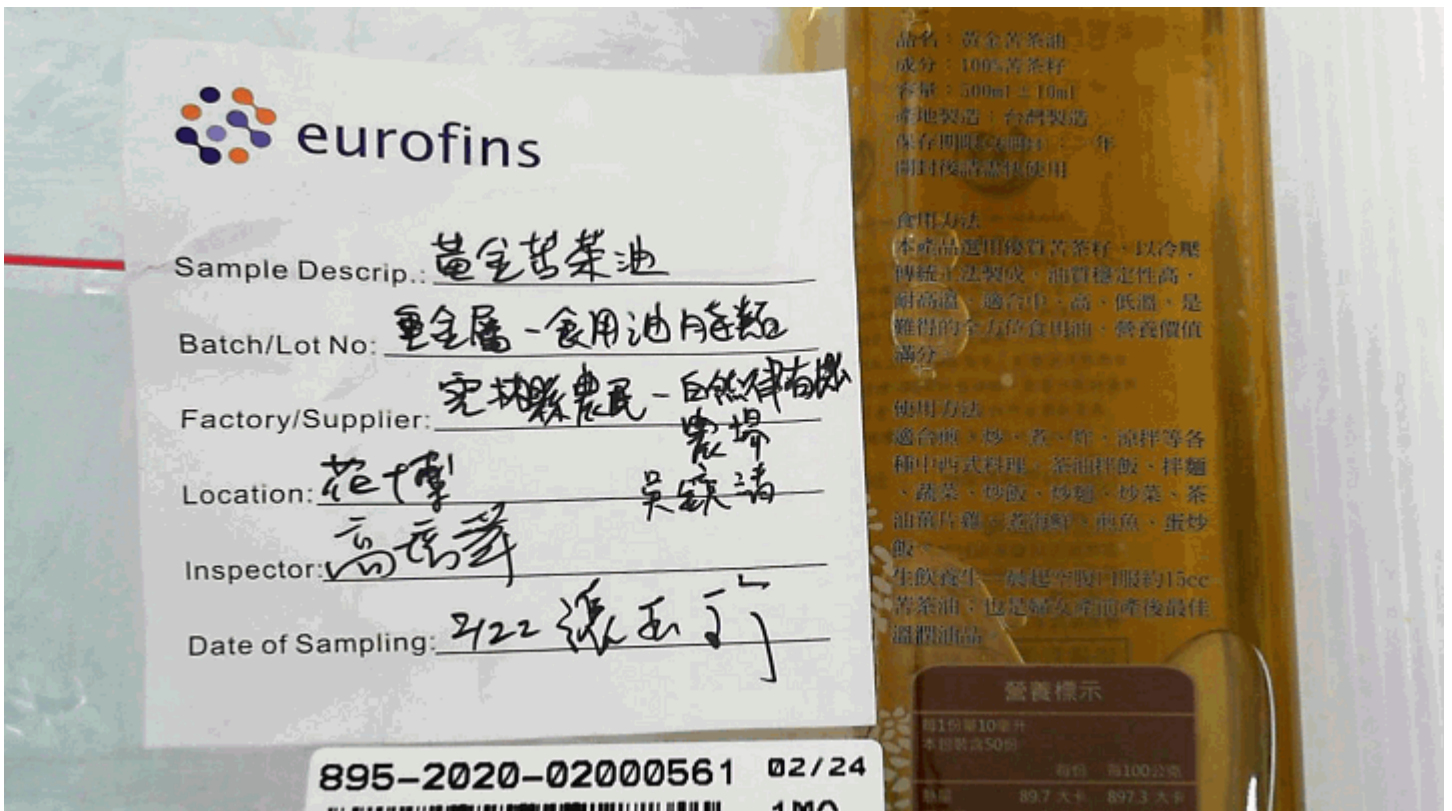 eurofins
Sample Descrip.: 黃金苦茶油
Batch/Lot No: 重金屬-食用油脂類
Factory/Supplier: 雲林縣農民-自然律有機
農場
Location: 花博
吳鎮清
Inspector: 高
Date of Sampling: 2/22 張玉
895-2020-02000561 02/24
1MO
品名：黃金苦茶油
成分：100%苦茶籽
容量：500ml±10ml
產地製造：台灣製造
保存期限(未開封)：二年
開封後請盡快使用
食用方法
本產品選用優質苦茶籽，以冷壓
傳統工法製成，油質穩定性高，
耐高溫，適合中、高、低溫，是
難得的全方位食用油，營養價值
滿分。
使用方法
適合煎、炒、煮、炸、涼拌等各
種中西式料理。茶油拌飯、拌麵
、蔬菜、炒飯、炒麵、炒菜、茶
油薑片雞、煮海鮮、煎魚、蛋炒
飯。
生飲養生－晨起空腹口服約15cc
苦茶油；也是婦女產前產後最佳
溫潤油品。
營養標示
每1份量10毫升
本包裝含50份
每份 每100公克
熱量 89.7 大卡 897.3 大卡